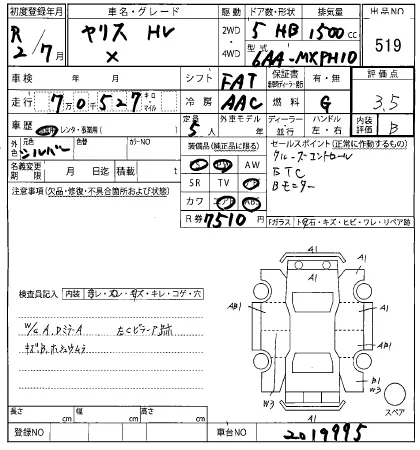 初度登録年月 車名・グレード 駆動 ドア数・形状 排気量 出品NO
R 2/7月 ヤリス HV 2WD・4WD 5 HB 1500cc 519
X 型式 6AA-MXPH10
車検 年 月 シフト FAT 保証書 有・無 評価点
走行 7万0千527 キロ・マイル 冷房 AAC 燃料 G 3.5
車歴 レンタ・事業用( ) 定員 5人 外車モデル 年 ディーラー 並行 ハンドル 左・右 内装評価 B
外色 シルバー 元色 色替 カラーNO 装備品(純正品に限る) セールスポイント(正常に作動するもの)
名義変更期限 月 日迄 積載 t AW クルーズコントロール
SR TV ETC
注意事項(欠品・修復・不具合箇所および状態) カワ エアB ABS Bモニター
R券 7510円 Fガラス トビ石・キズ・ヒビ・ワレ・リペア跡
検査員記入 内装 キレ・スレ・キズ・キレ・コゲ・穴
W/G A、Dミラー A 左Cピラー ア跡
キズB、
A1
A1
A1
AB1
A1
AB1
B1
W3
W3
A1
スペア
長さ cm 幅 cm 高さ cm
登録NO 車台NO 2019995